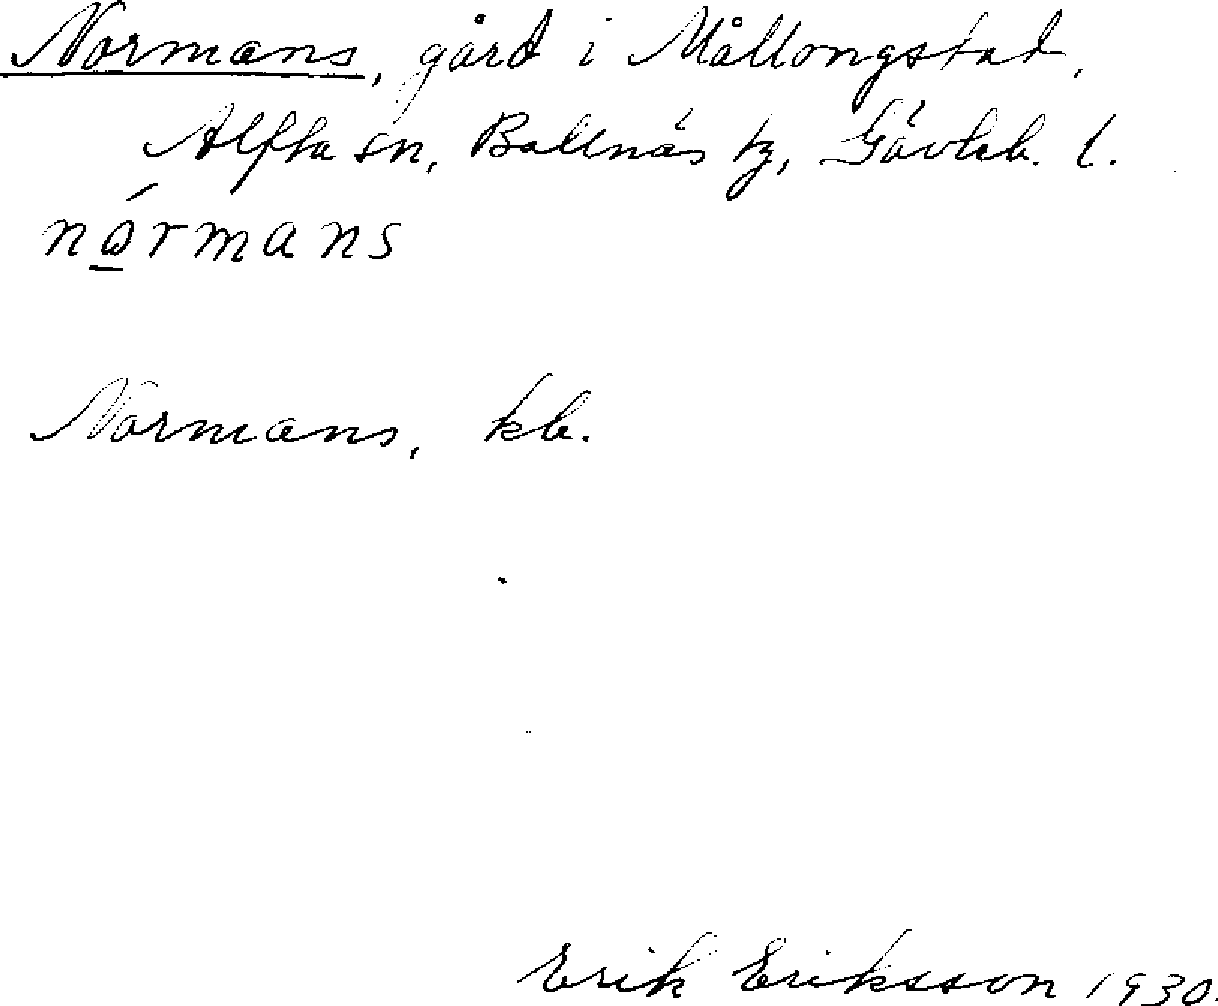 Normans, gård i Mållongstad,
Alfta sn, Bollnäs tg, Gävleb. l.
nórmans
Normans, kb.
Erik Eriksson 1930